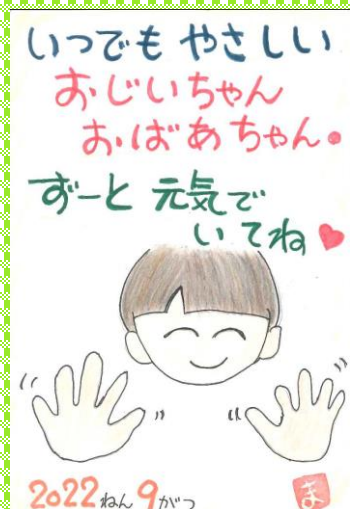 いつでも やさしい
おじいちゃん
おばあちゃん。
ずーと 元気で
いてね
2022ねん 9がつ
ま